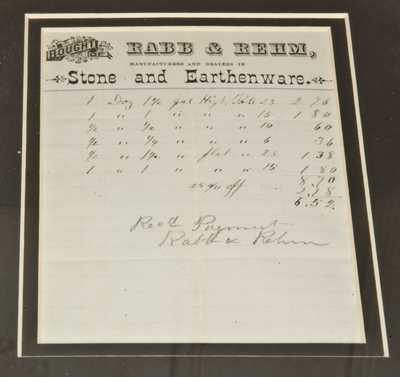 BOUGHT OF
RABB & REHM,
MANUFACTURERS AND DEALERS IN
Stone and Earthenware.
1 Doz 1½ gal High 23 2 76
1 " 1 " " " 15 1 80
½ " ½ " " " 10 60
½ " ¼ " " " 6 36
½ " 1½ " flat " 23 1 38
1 " 1 " " " 15 1 80
8.70
25% off 2.18
6.52
Rec'd Payment
Rabb & Rehm